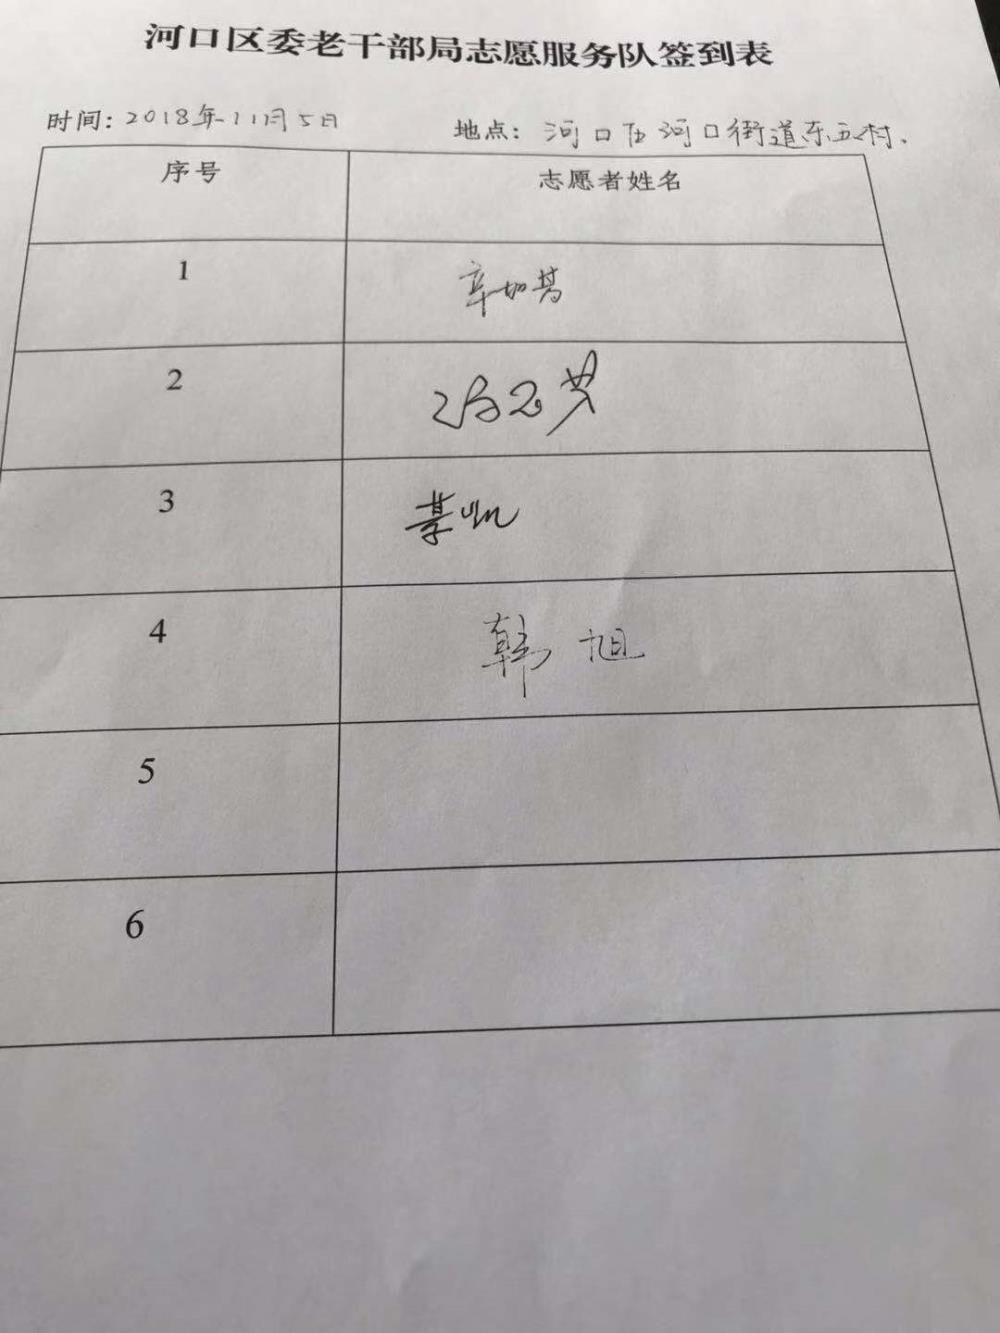 河口区委老干部局志愿服务队签到表
时间：2018年11月5日 地点：河口区河口街道东五村.
序号 志愿者姓名
1
2
3
4 韩旭
5
6